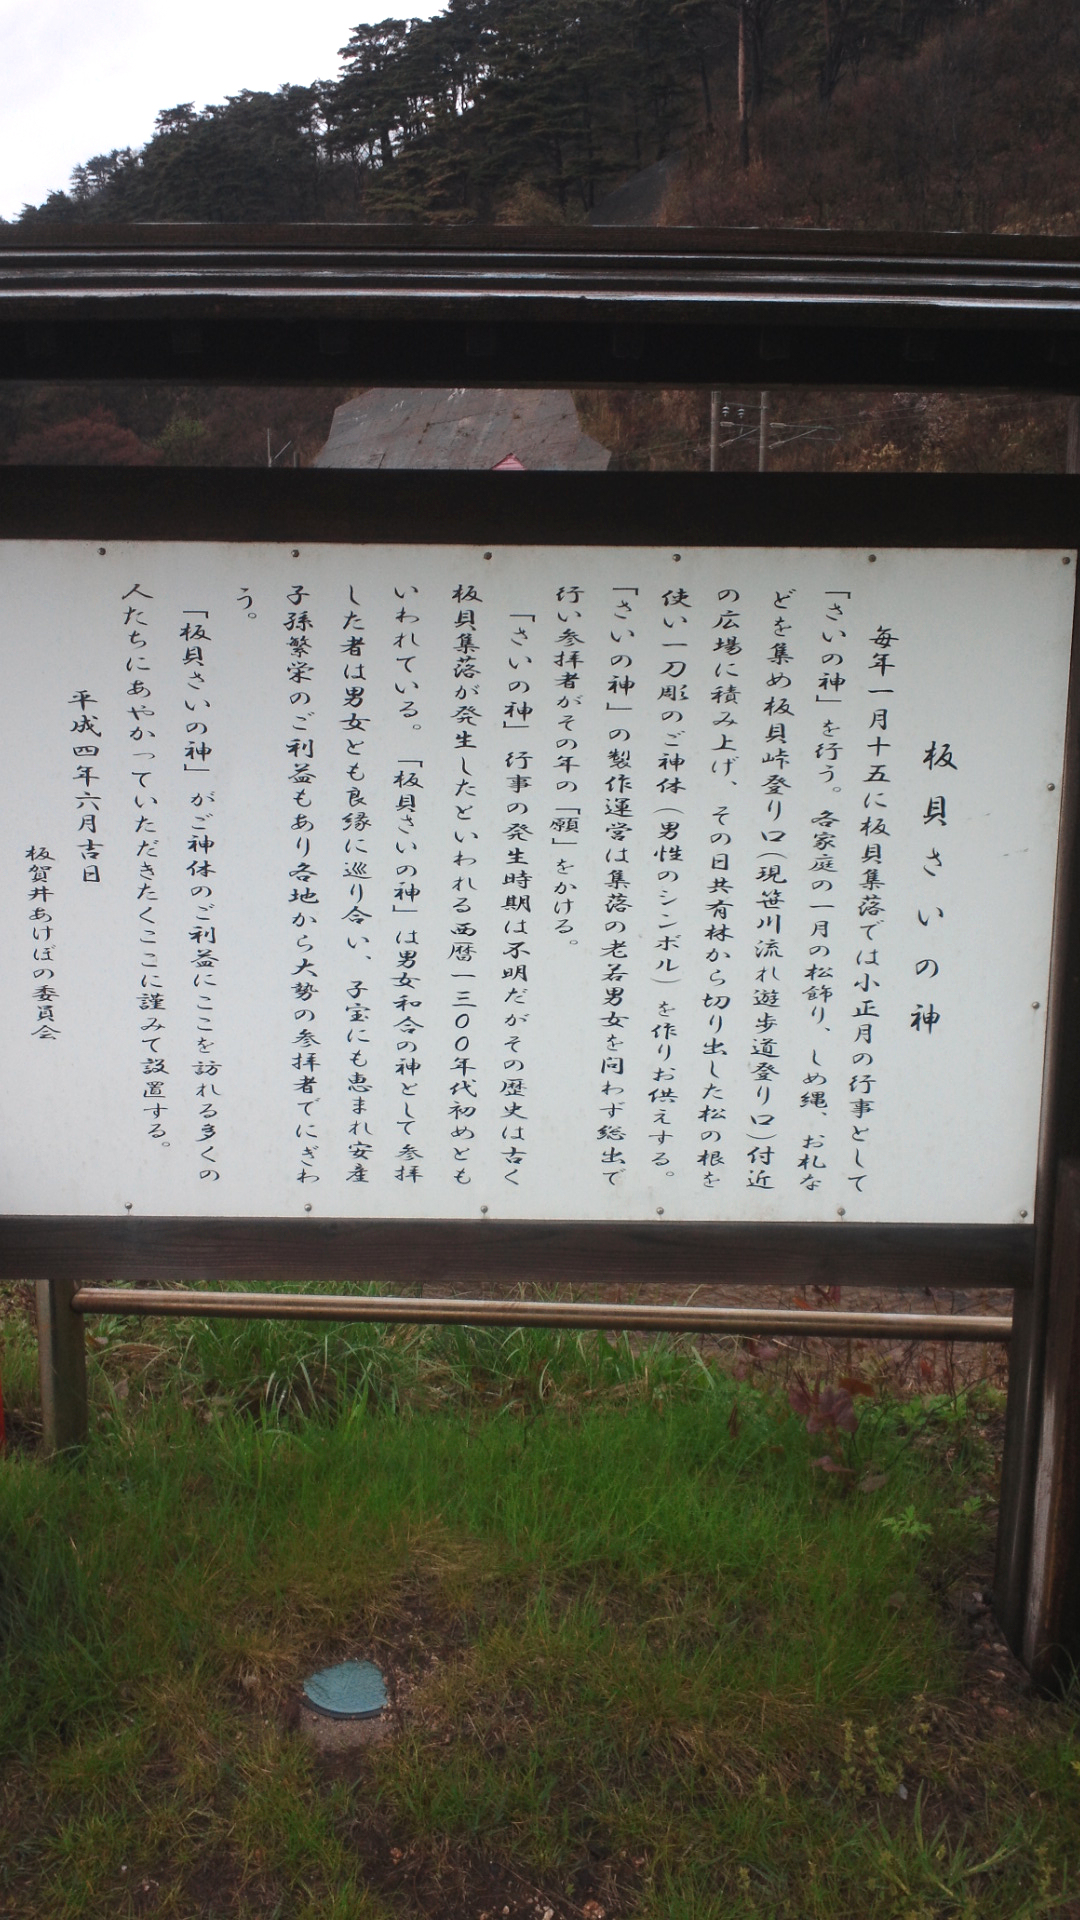 板貝さいの神
毎年一月十五に板貝集落では小正月の行事として
「さいの神」を行う。各家庭の一月の松飾り、しめ縄、お札な
どを集め板貝峠登り口(現笹川流れ遊歩道登り口)付近
の広場に積み上げ、その日共有林から切り出した松の根を
使い一刀彫のご神体(男性のシンボル)を作りお供えする。
「さいの神」の製作運営は集落の老若男女を問わず総出で
行い参拝者がその年の「願」をかける。
「さいの神」行事の発生時期は不明だがその歴史は古く
板貝集落が発生したといわれる西暦一三〇〇年代初めとも
いわれている。「板貝さいの神」は男女和合の神として参拝
した者は男女とも良縁に巡り合い、子宝にも恵まれ安産
子孫繁栄のご利益もあり各地から大勢の参拝者でにぎわ
う。
「板貝さいの神」がご神体のご利益にここを訪れる多くの
人たちにあやかっていただきたくここに謹みて設置する。
平成四年六月吉日
板賀井あけぼの委員会